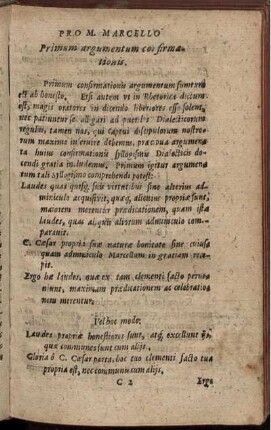 PRO M. MARCELLO
Primum argumentum confirma-
tionis.
Primum confirmationis argumentum sumitur
est ab honesto. Etsi autem vt in Rhetorica dictum
est; magis oratores in dicendo liberiores esse solent,
nec patiuntur se alligari ad puerilis Dialecticorum
regulas, tamen nos, qui captui discipulorum nostro-
rum maxime inseruire debemus, præcipua argumen-
ta huius confirmationis syllogismis Dialecticis do-
cendi gratia includemus. Primum igitur argumen-
tum tali syllogismo comprehendi potest:
Laudes quas quisq; suis virtutibus sine alterius ad-
miniculo acquisivit, quæq; alienis propriæ sunt,
maiorem merentur prædicationem, quam istæ
laudes, quas aliquis aliorum adminiculo com-
parauit.
C. Cæsar propria suæ naturæ bonitate sine cuiusq;
quam adminiculo Marcellum in gratiam rece-
pit.
Ergo hæ laudes, quæ ex tam clementi facto perve-
niunt, maximam prædicationem ac celebratio-
nem merentur.
Vel hoc modo:
Laudes propriæ honestiores sunt, atq; excellunt
quæ communes sunt cum alijs.
Gloria ô C. Cæsar parta, hoc tuo clementi facto tua
propria est, nec communis cum alijs.
C 2 Ergo